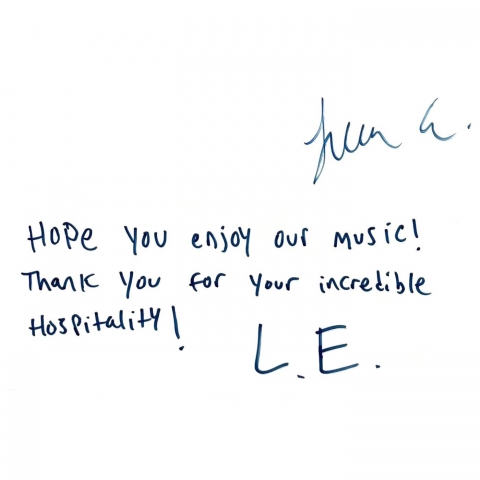 HOPE YOU enjoy our music!
Thank you for your incredible
Hospitality!
L.E.